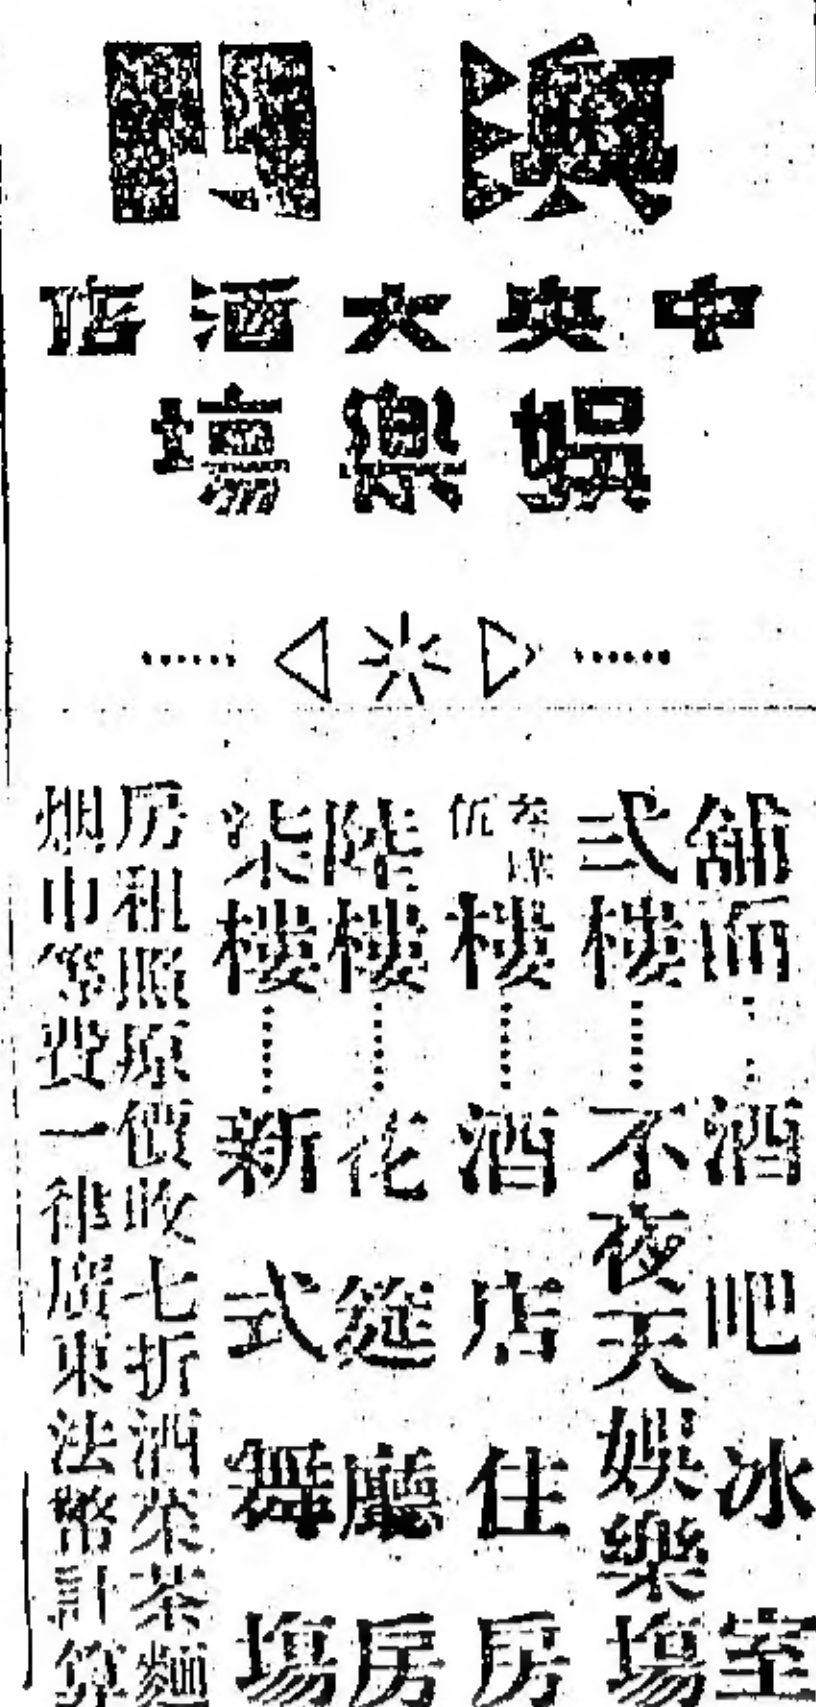 澳門
中央大酒店
娛樂場
舖面……酒吧冰室
弍樓……不夜天娛樂塲
叁肆伍樓……酒店住房
陸樓……花筵廳房
柒樓……新式舞塲
房租照原價收七折酒菜茶麵
烟巾等費一律廣東法幣計算